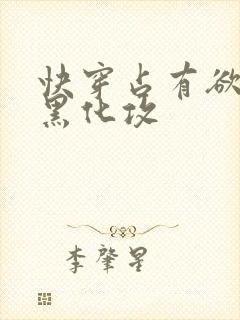 快穿占有欲
黑化攻
李肇星